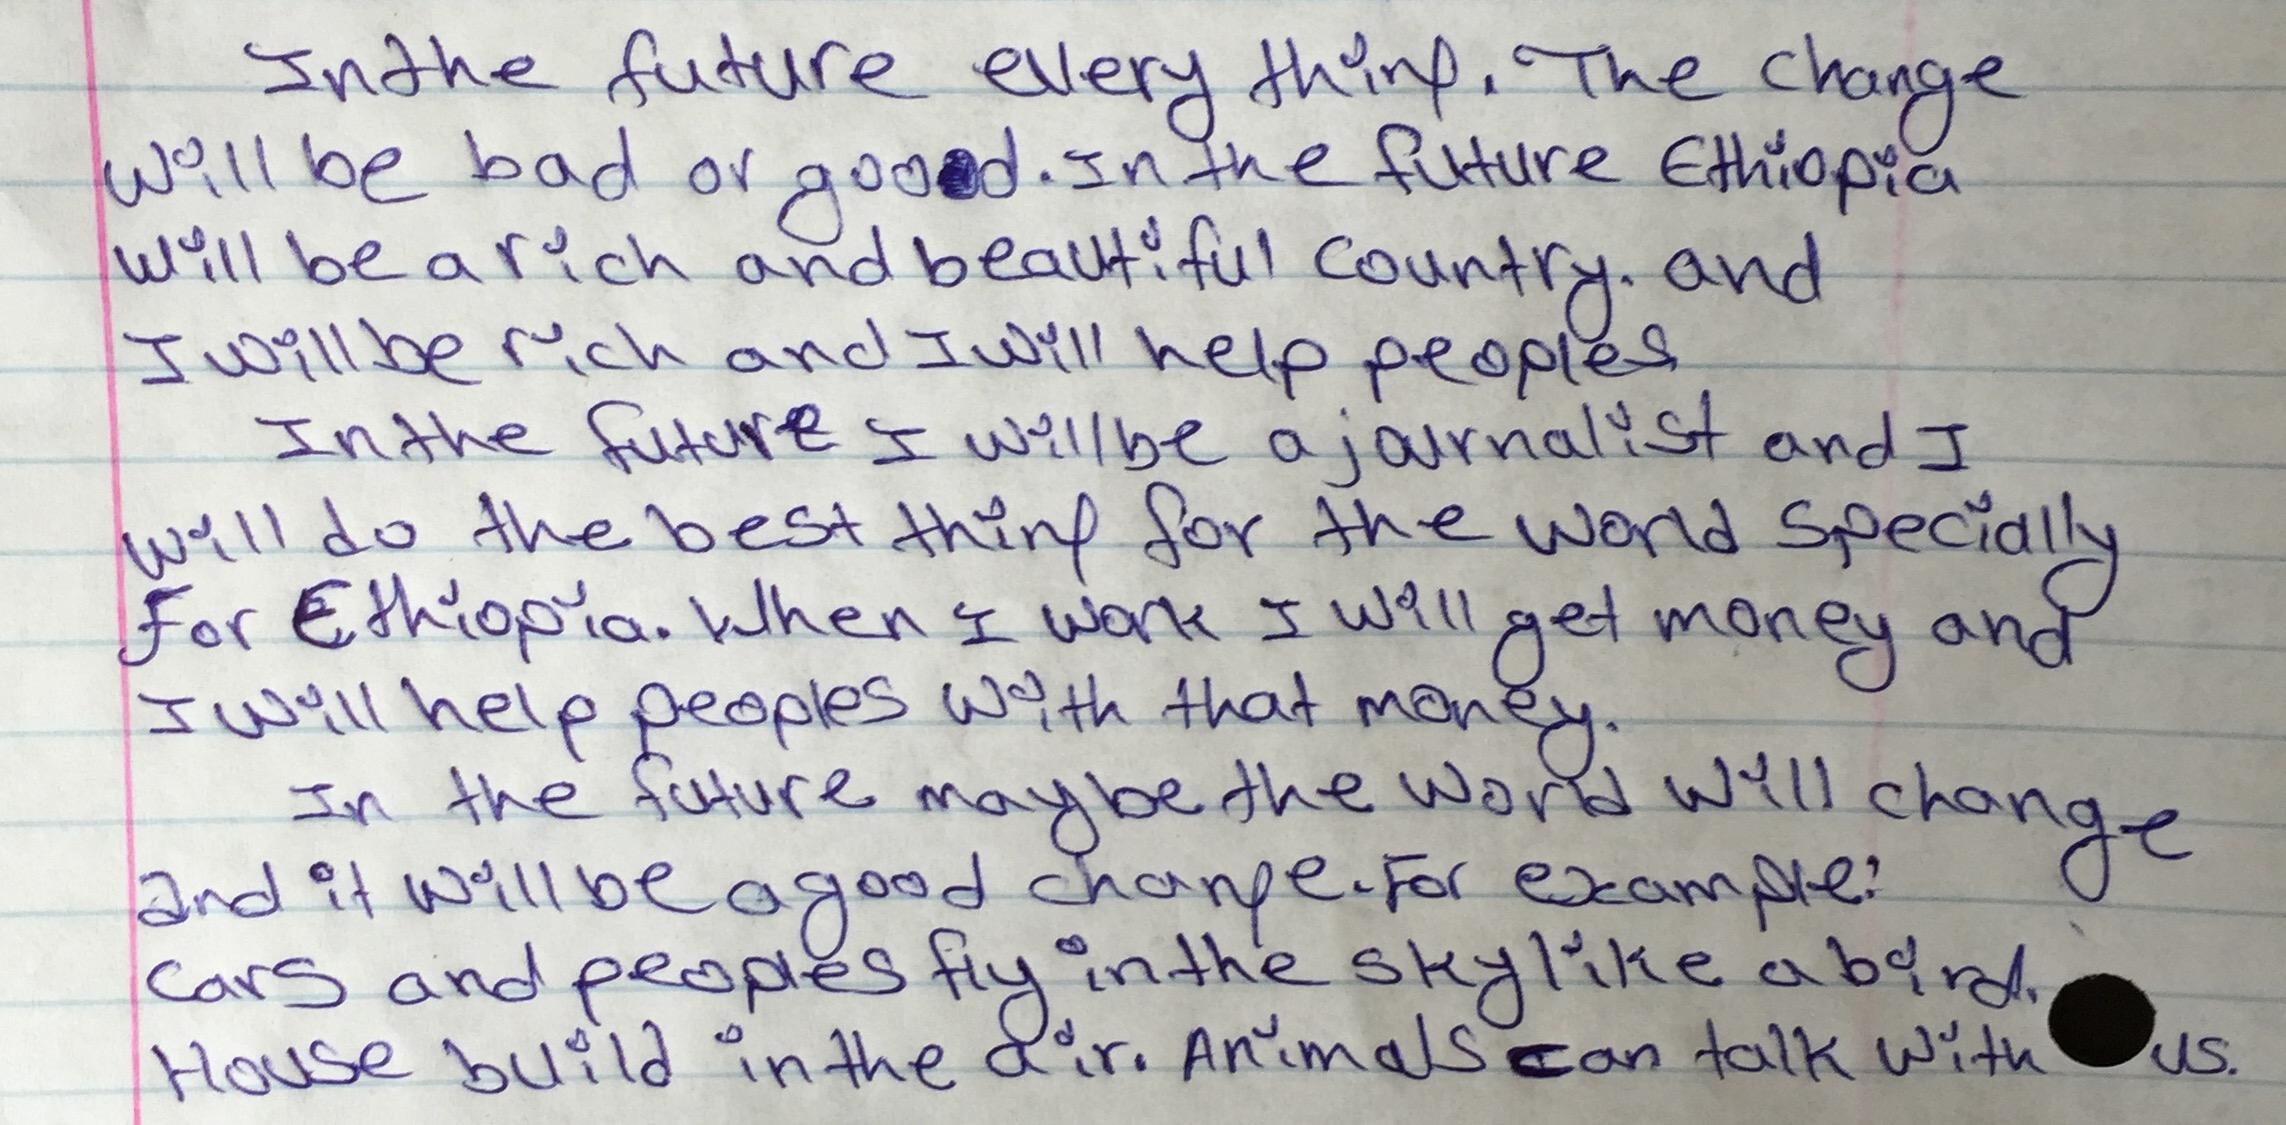 In the future every thing. The change
will be bad or goood. In the future Ethiopia
will be a rich and beautiful country. and
I will be rich and I will help peoples
In the future I will be a journalist and I
will do the best thing for the world specially
for Ethiopia. When I work I will get money and
I will help peoples with that money.
In the future maybe the world will change
and it will be a good change. For example:
cars and peoples fly in the sky like a bird.
House build in the air. Animals can talk with us.